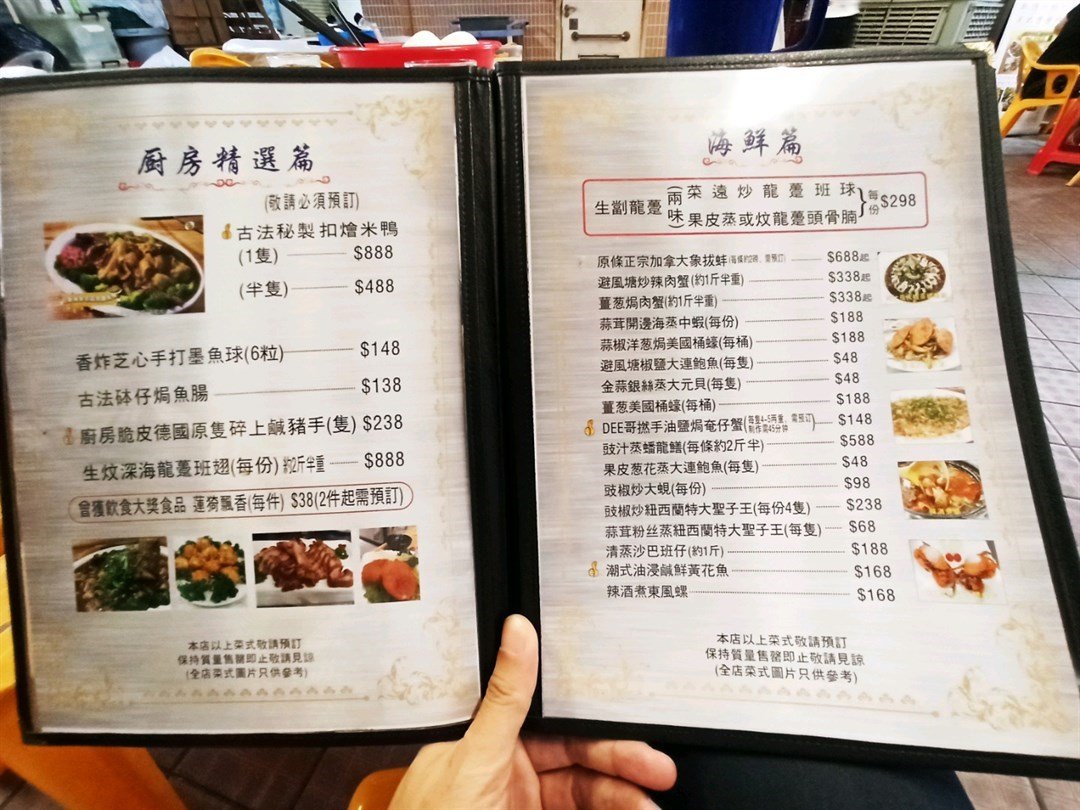 厨房精選篇
(敬請必須預訂)
古法秘製扣燴米鴨
(1隻) $888
(半隻) $488
香炸芝心手打墨魚球(6粒) $148
古法砵仔焗魚腸 $138
廚房脆皮德國原隻碎上鹹豬手(隻) $238
生炆深海龍躉班翅(每份) 約2斤半重 $888
曾獲飲食大獎食品 蓮猗飄香(每件) $38(2件起需預訂)
本店以上菜式敬請預訂
保持質量售罄即止敬請見諒
(全店菜式圖片只供參考)
海鮮篇
生劏龍躉(兩味) 菜遠炒龍躉班球
果皮蒸或炆龍躉頭骨腩 每份 $298
原條正宗加拿大象拔蚌(每條約2磅、需預訂) $688起
避風塘炒辣肉蟹(約1斤半重) $338起
薑葱焗肉蟹(約1斤半重) $338起
蒜茸開邊海蒸中蝦(每份) $188
蒜椒洋葱焗美國桶蠔(每桶) $188
避風塘椒鹽大連鮑魚(每隻) $48
金蒜銀絲蒸大元貝(每隻) $48
薑葱美國桶蠔(每桶) $188
DEE哥撚手油鹽焗奄仔蟹(每隻4-5両重、需預訂 制作需45分钟) $148
豉汁蒸蟠龍鱔(每條約2斤半) $588
果皮葱花蒸大連鮑魚(每隻) $48
豉椒炒大蜆(每份) $98
豉椒炒紐西蘭特大聖子王(每份4隻) $238
蒜茸粉丝蒸紐西蘭特大聖子王(每隻) $68
清蒸沙巴班仔(約1斤) $188
潮式油浸鹹鮮黃花魚 $168
辣酒煮東風螺 $168
本店以上菜式敬請預訂
保持質量售罄即止敬請見諒
(全店菜式圖片只供參考)